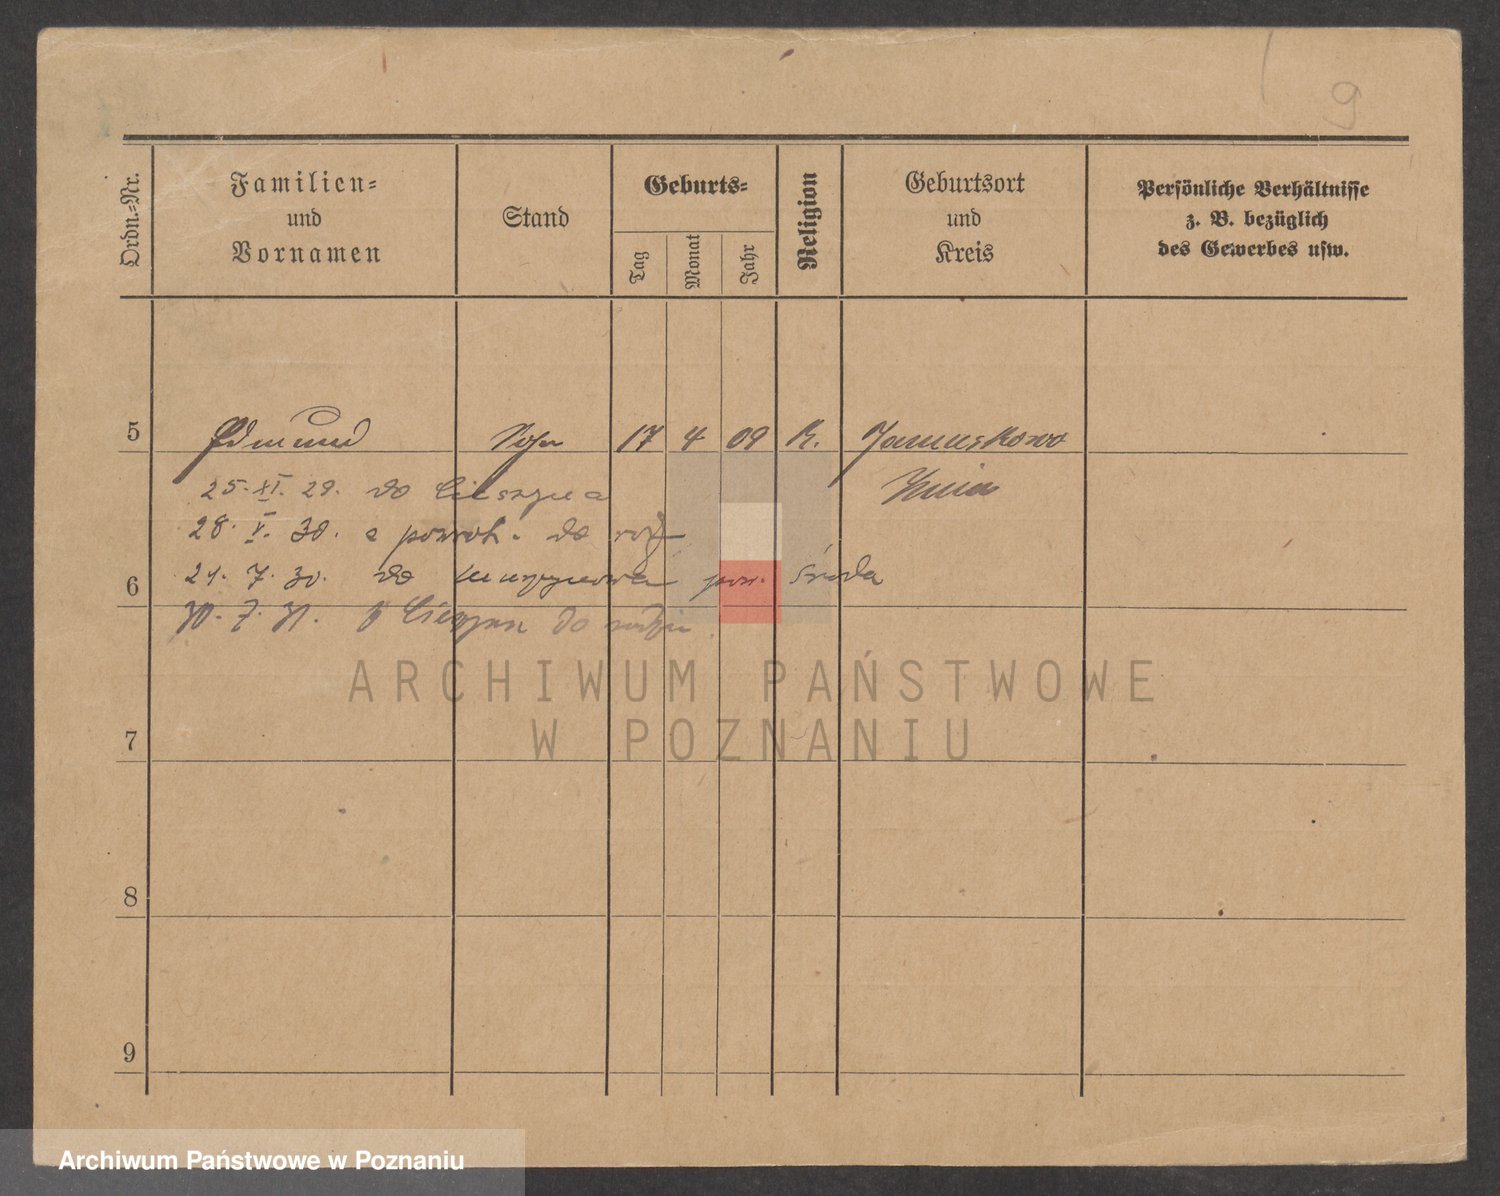 9
Ordn.-Nr.
Familien-
und
Vornamen
Stand
Geburts-
Tag
Monat
Jahr
Religion
Geburtsort
und
Kreis
Persönliche Verhältnisse
z. B. bezüglich
des Gewerbes usw.
5 Edmund 17 4 09 K. Januszkowo
Żnin
25. XI. 29. do Cieszyna
28. V. 30. z powrot. do
21. 7. 30. do pow. Środa
6
30. 7. 31. Cieszyn do
ARCHIWUM PAŃSTWOWE
W POZNANIU
7
8
9
Archiwum Państwowe w Poznaniu